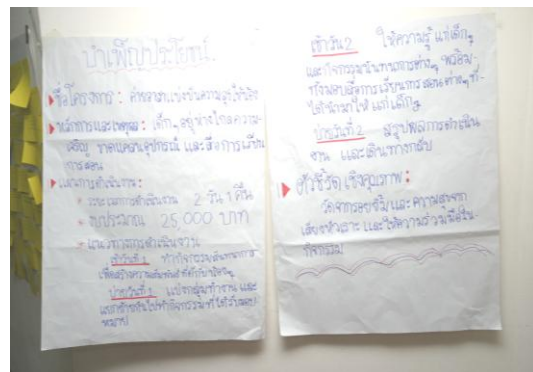 บำเพ็ญประโยชน์
ชื่อโครงการ : ค่ายอาสาแบ่งปันความสุขให้น้อง
หลักการและเหตุผล : เด็กๆ อยู่ห่างไกลความ-
เจริญ ขาดแคลนอุปกรณ์ และสื่อการเรียน
การสอน
แผนการดำเนินงาน :
* ระยะเวลาการดำเนินงาน 2 วัน 1 คืน
* งบประมาณ 25,000 บาท
* แนวทางการดำเนินงาน
เช้าวันที่ 1 ทำกิจกรรมสันทนาการ
เพื่อสร้างความสัมพันธ์
บ่ายวันที่ 1 แบ่งกลุ่มทำงาน และ
แยกย้ายกันไปทำกิจกรรมที่ได้รับมอบ
หมาย
เช้าวัน 2 ให้ความรู้ แก่เด็กๆ
และกิจกรรมนันทนาการต่างๆ พร้อม-
ทั้งมอบสื่อการเรียนการสอนต่างๆ ที่-
ได้นำมาให้ แก่เด็กๆ
บ่ายวันที่ 2 สรุปผลการดำเนิน
งาน และเดินทางกลับ
ตัวชี้วัดเชิงคุณภาพ :
วัดจากรอยยิ้ม และความสุขจาก
เสียงหัวเราะ และให้ความร่วมมือใน-
กิจกรรม